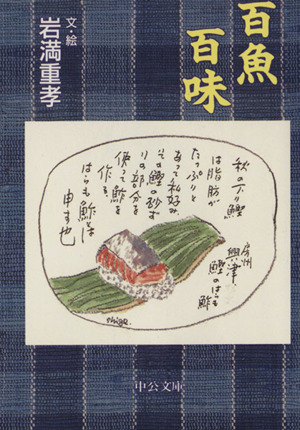 百魚
百味
文・絵
岩満重孝
秋の下り鰹
は脂肪が
たっぷりと
あって私好み
その鰹の砂ず
りの部分を
使って鮓を
作る
はらもの鮓とは
申す也
房州
興津
鰹のはらも
鮓
shige.
中公文庫